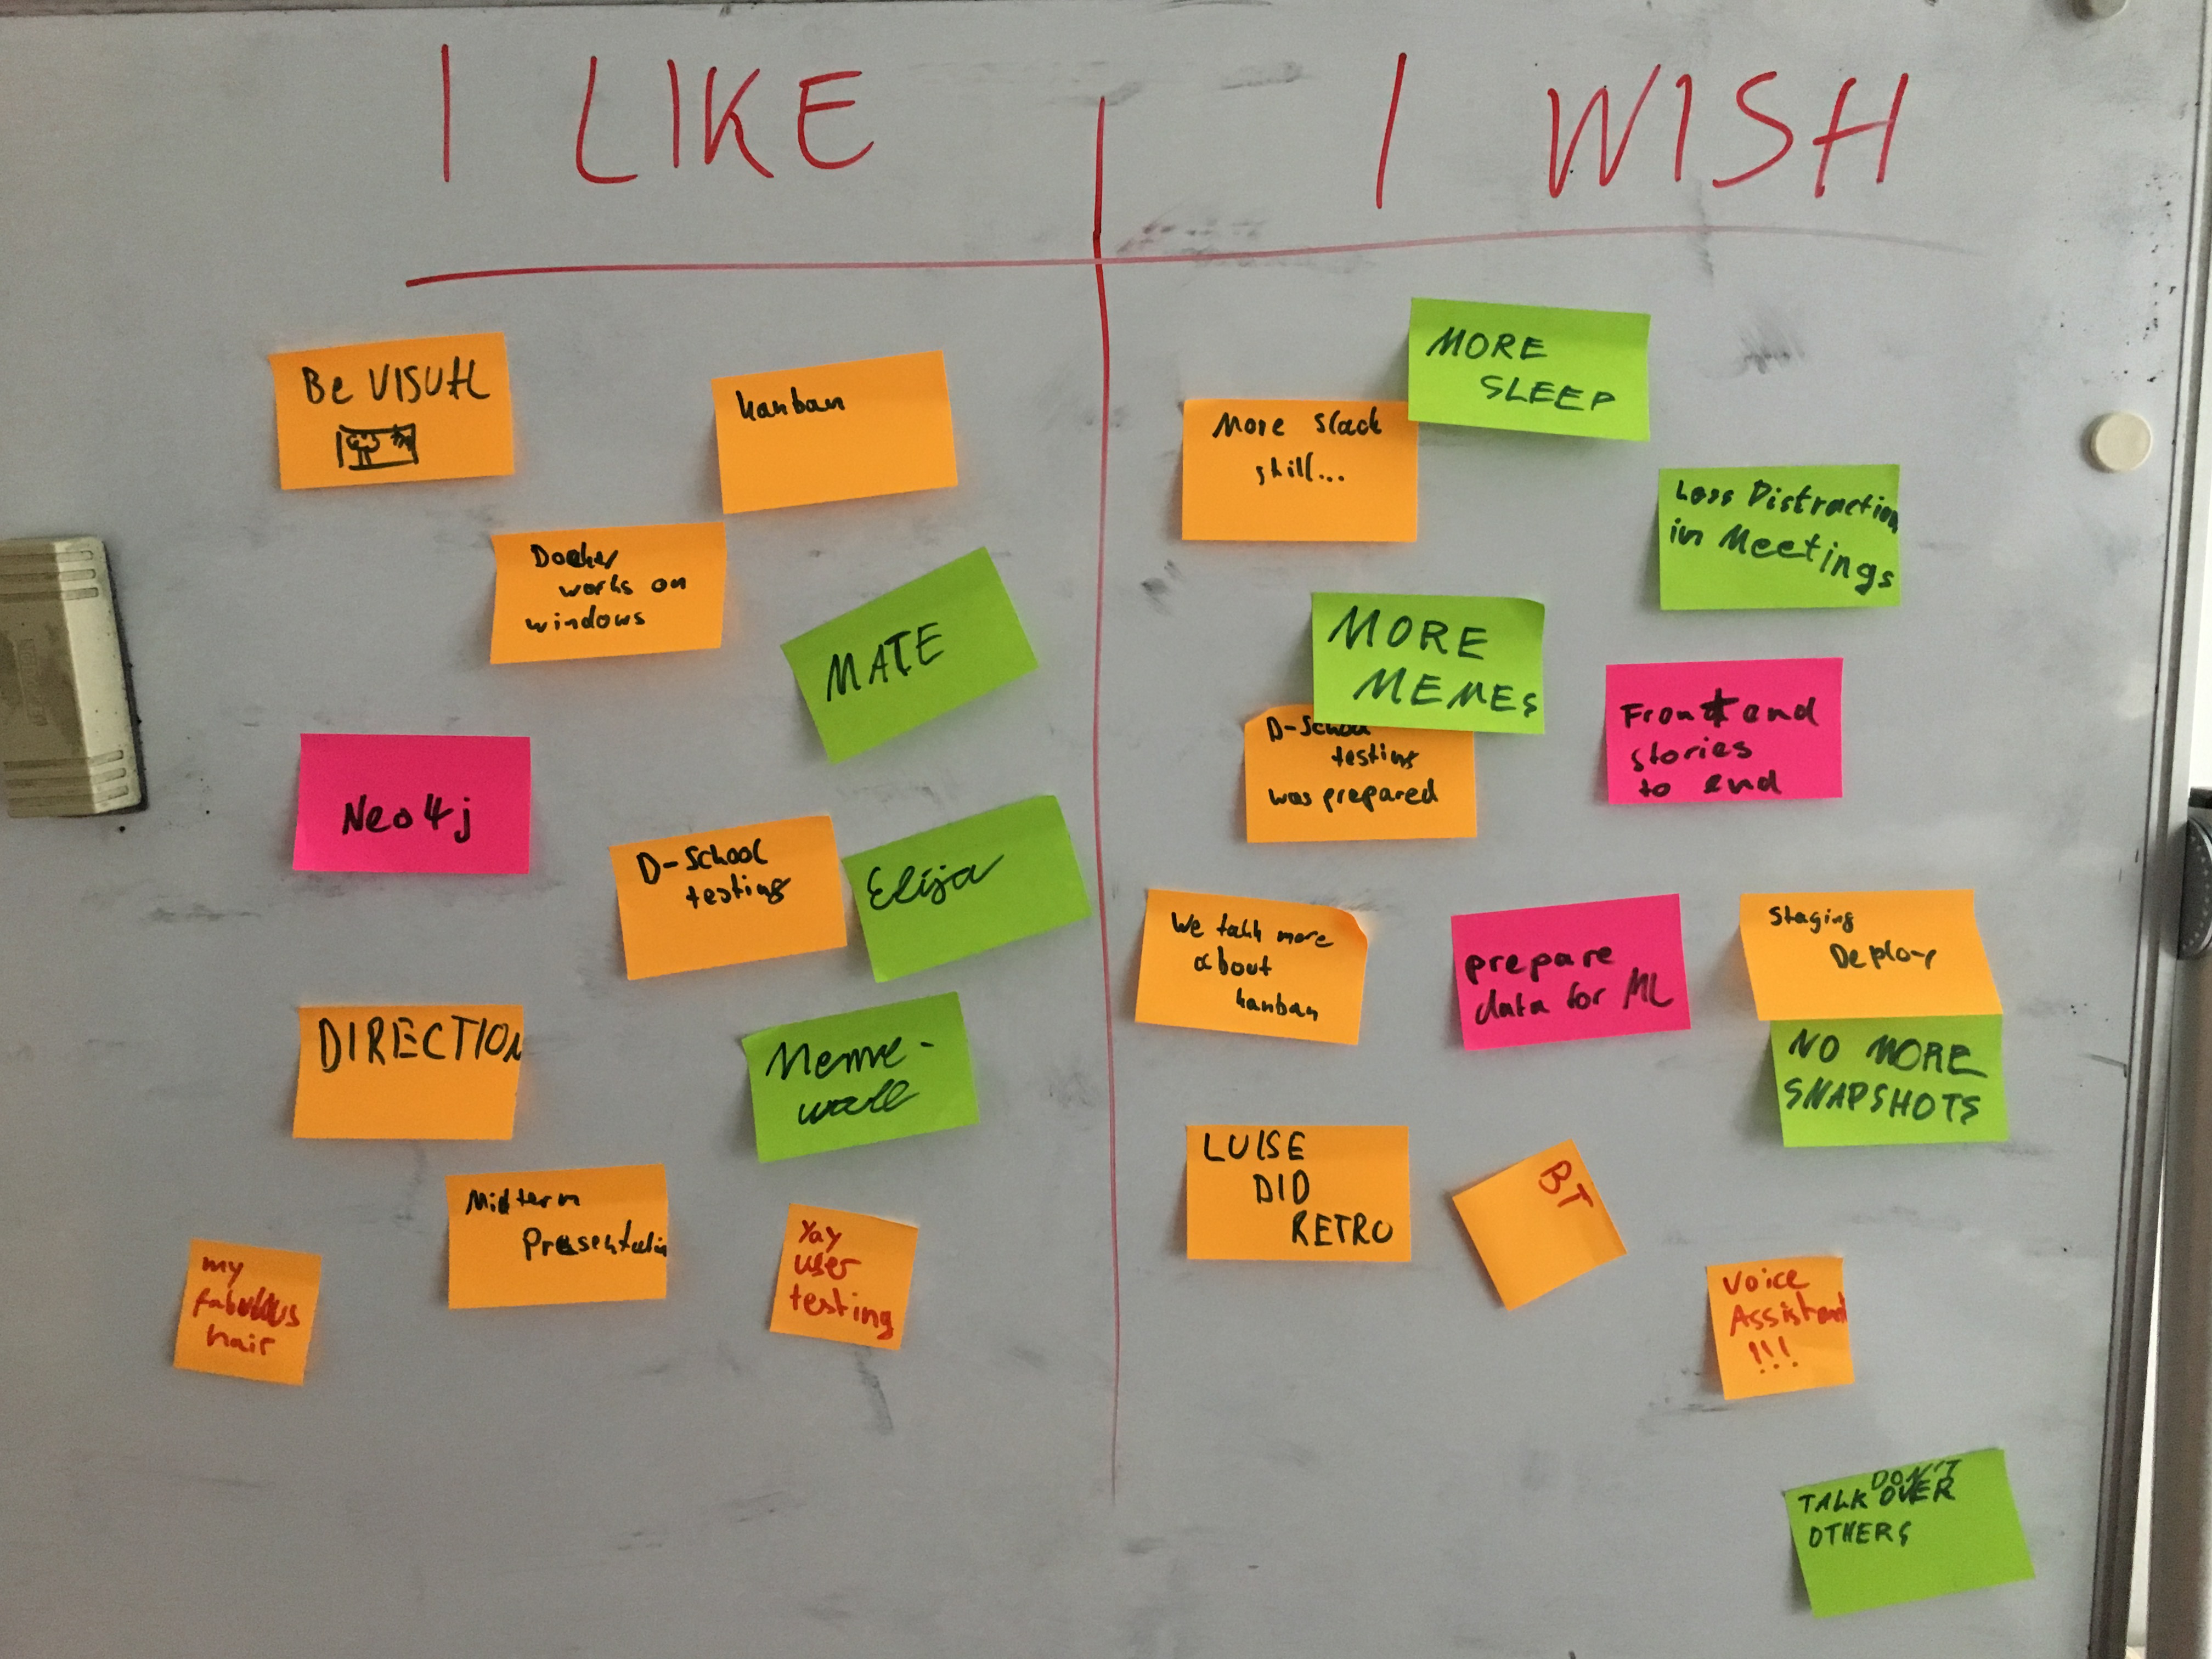 I LIKE
I WISH
Be VISUAL
kanban
Docker
works on
windows
MATE
Neo4j
D-School
testing
Elija
DIRECTION
Meme-
wall
Midterm
Presentation
my
fabulous
hair
Yay
user
testing
MORE
SLEEP
More Slack
skill...
Less Distraction
in Meetings
MORE
MEMES
D-School
testing
was prepared
Frontend
stories
to end
We talk more
about
kanban
prepare
data for ML
Staging
Deploy
NO MORE
SNAPSHOTS
LUISE
DID
RETRO
BT
Voice
Assistant
!!!
DON'T
TALK OVER
OTHERS